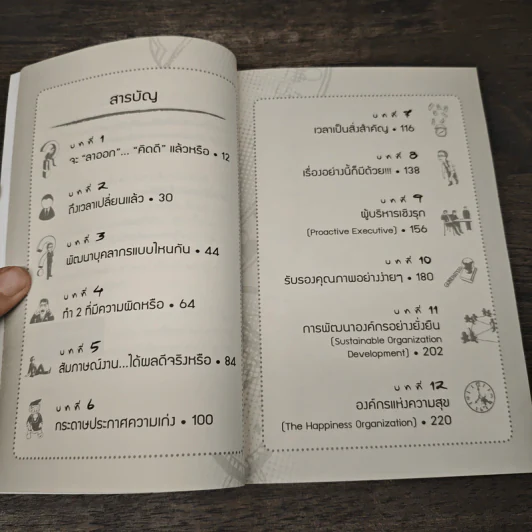 สารบัญ
บทที่ 1
จะ "ลาออก"... "คิดดี" แล้วหรือ • 12
บทที่ 2
ถึงเวลาเปลี่ยนแล้ว • 30
บทที่ 3
พัฒนาบุคลากรแบบไหนกัน • 44
บทที่ 4
ทำ 2 ที่มีความผิดหรือ • 64
บทที่ 5
สัมภาษณ์งาน...ได้ผลดีจริงหรือ • 84
บทที่ 6
กระดาษประกาศความเก่ง • 100
บทที่ 7
เวลาเป็นสิ่งสำคัญ • 116
บทที่ 8
เรื่องอย่างนี้ก็มีด้วย!!! • 138
บทที่ 9
ผู้บริหารเชิงรุก
(Proactive Executive) • 156
บทที่ 10
รับรองคุณภาพอย่างง่ายๆ • 180
บทที่ 11
การพัฒนาองค์กรอย่างยั่งยืน
(Sustainable Organization
Development) • 202
บทที่ 12
องค์กรแห่งความสุข
(The Happiness Organization) • 220